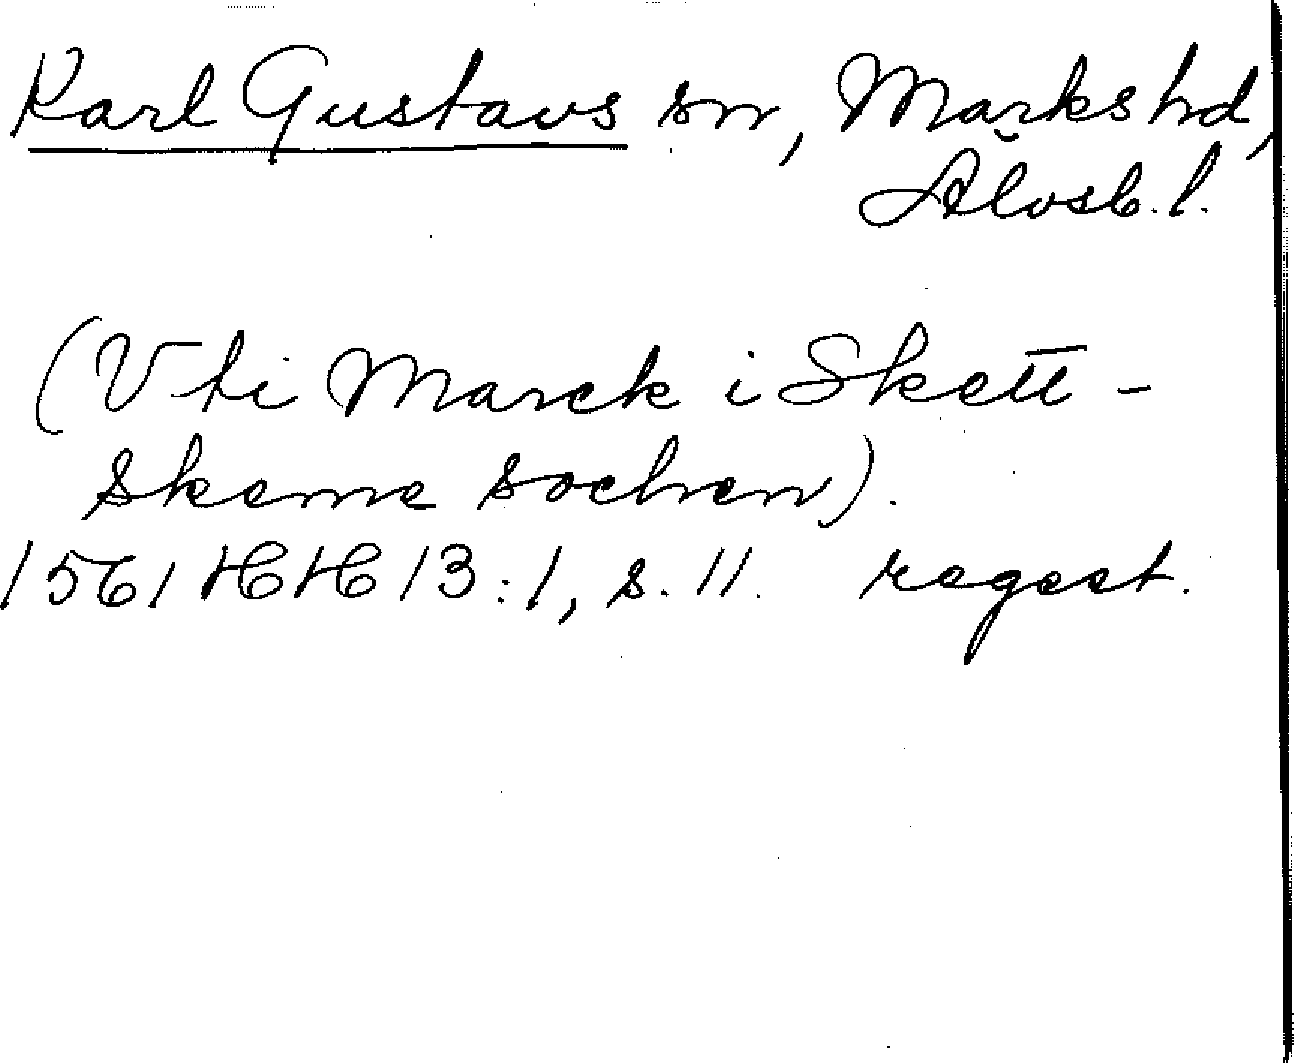 Karl Gustavs sn, Marks hd,
Älvsb. l.
(Vti Marck i Skett-
skeme sochen).
1561 HH 13:1, s. 11. regest.